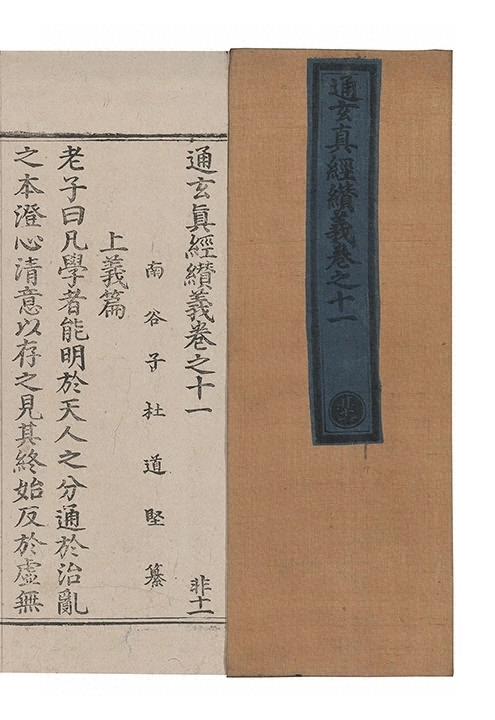 通玄真經纘義卷之十一
通玄真經纘義卷之十一 非十一
南谷子杜道堅纂
上義篇
老子曰凡學者能明於天人之分通於治亂
之本澄心清意以存之見其終始反於虛無